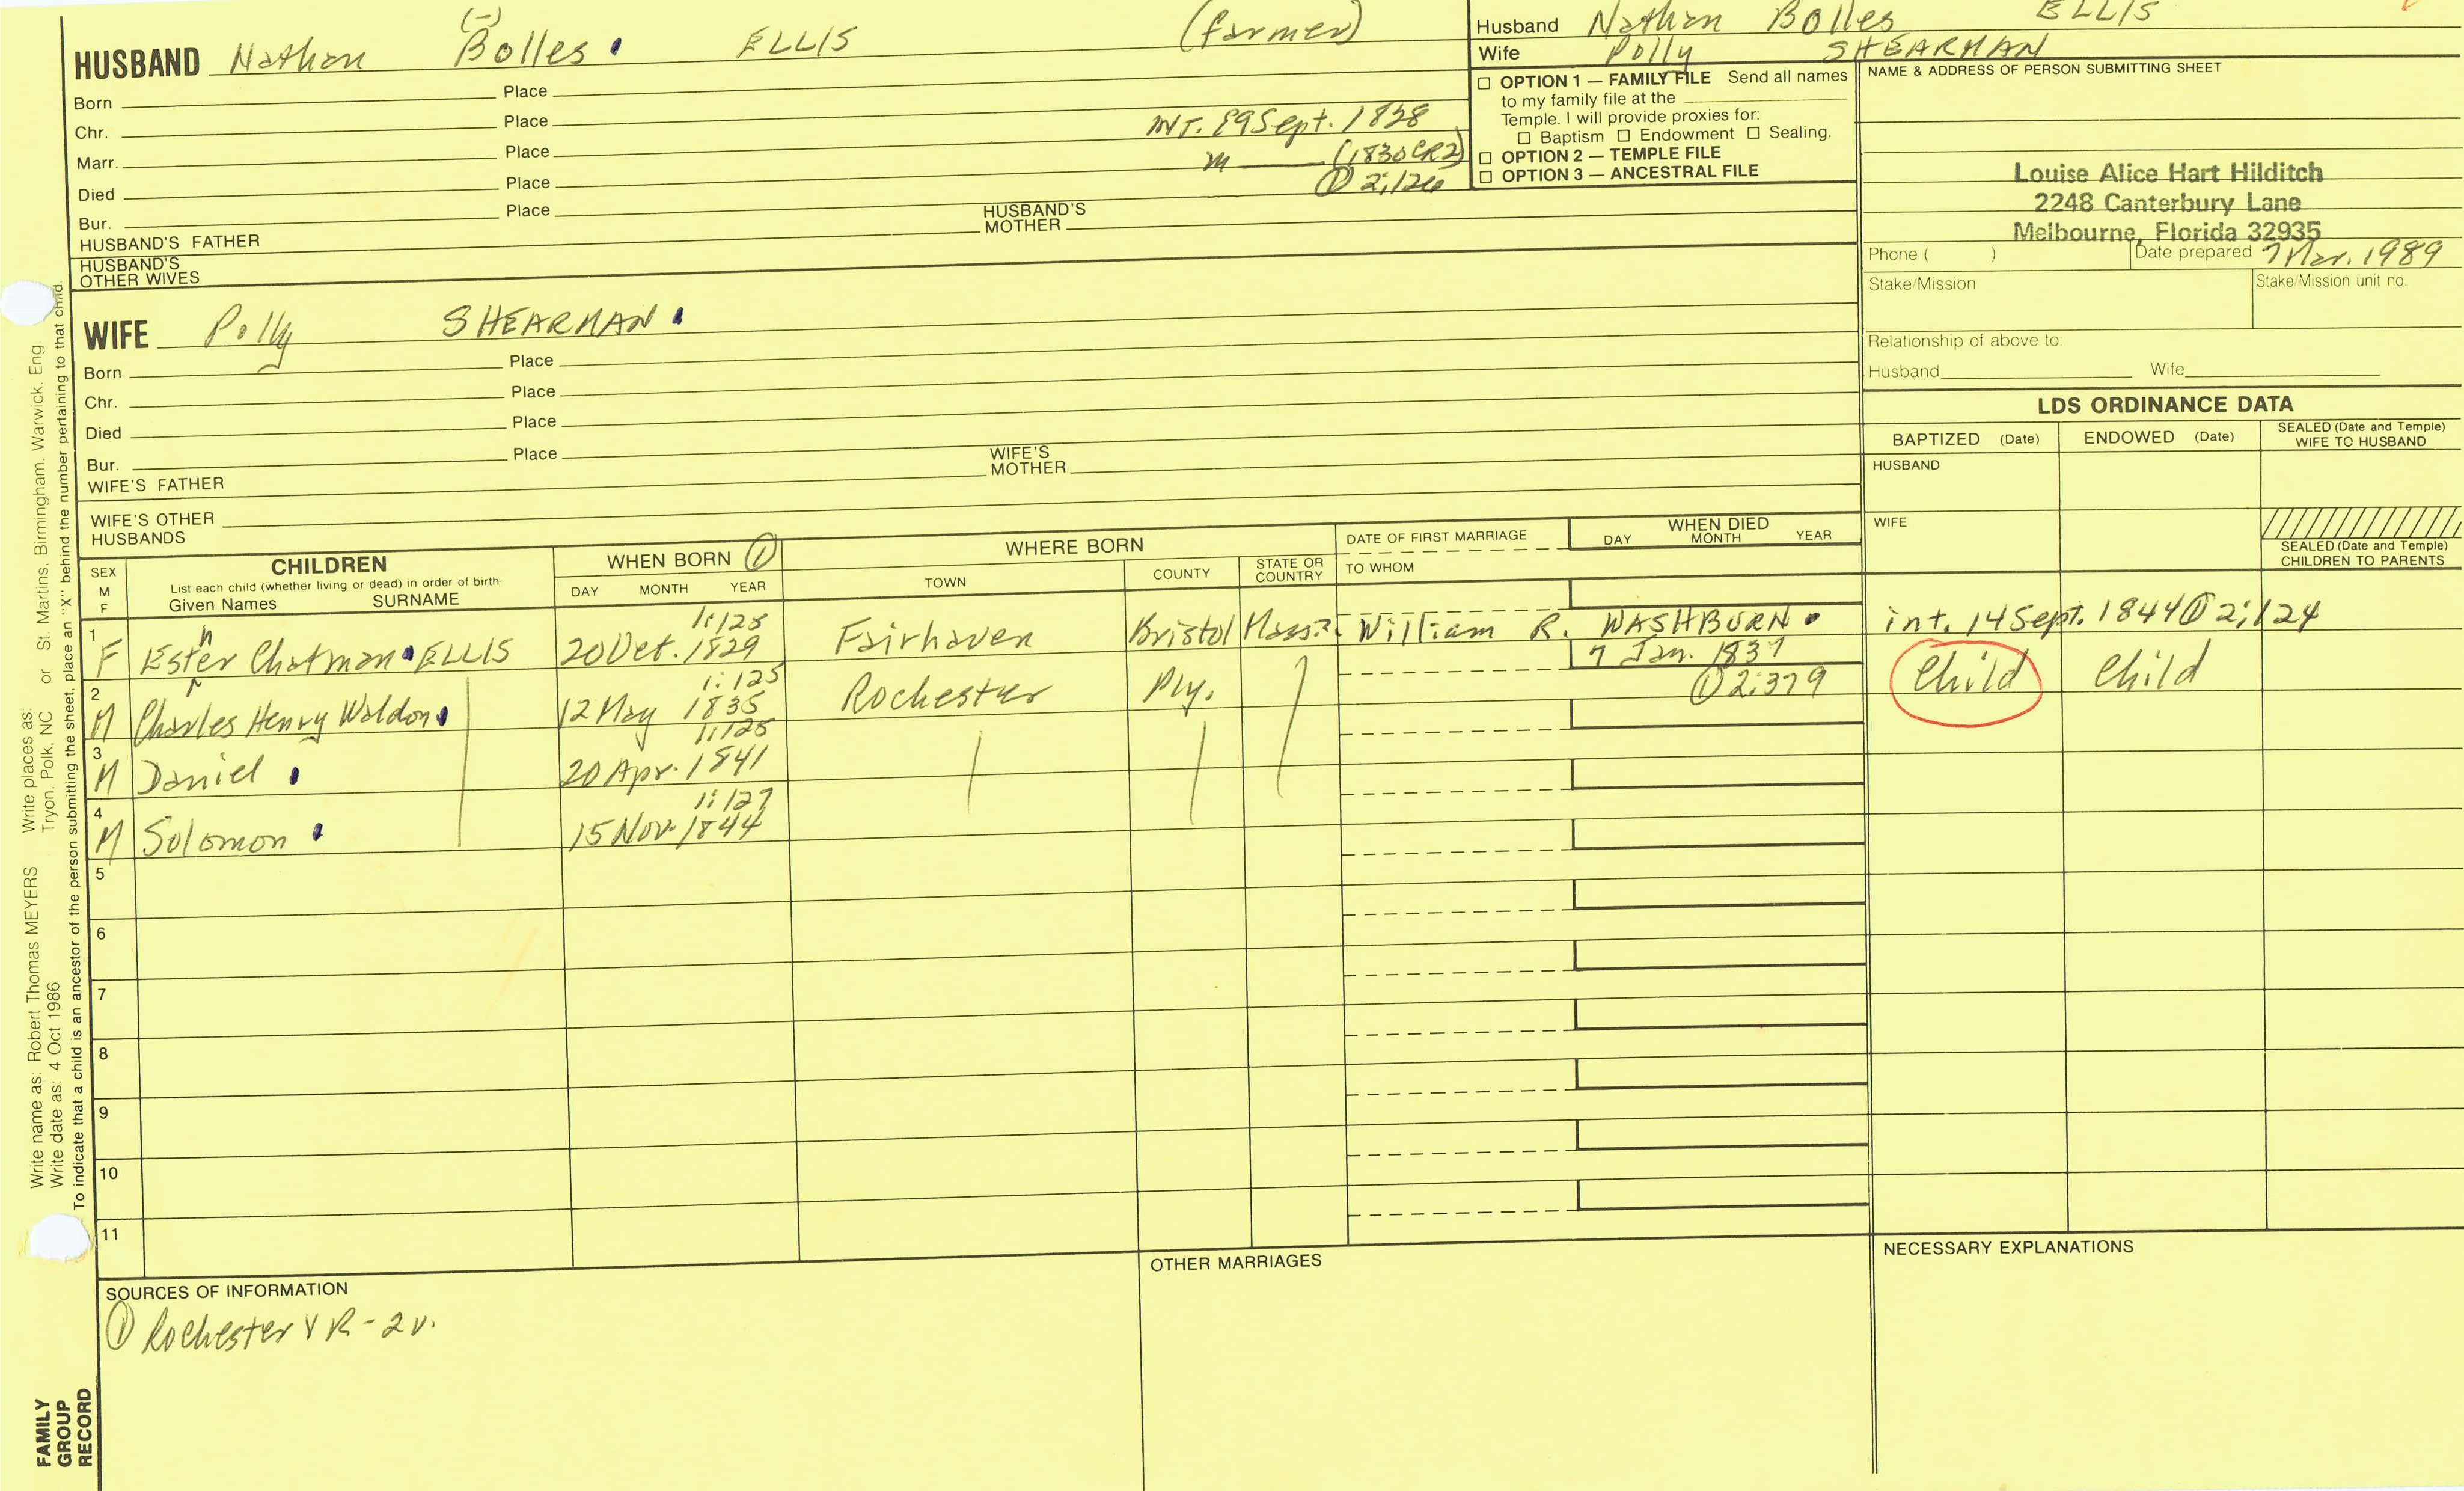 (-)
HUSBAND Nathan Bolles ELLIS (farmer)
Born Place
Chr. Place
Marr. Place
Died Place
Bur. Place
int. Sept. 1828
m (1830 CR2)
① 2:126
HUSBAND'S FATHER HUSBAND'S MOTHER
HUSBAND'S OTHER WIVES
Husband Nathan Bolles ELLIS
Wife Polly SHEARMAN
☐ OPTION 1 — FAMILY FILE Send all names
to my family file at the
Temple. I will provide proxies for:
☐ Baptism ☐ Endowment ☐ Sealing.
☐ OPTION 2 — TEMPLE FILE
☐ OPTION 3 — ANCESTRAL FILE
NAME & ADDRESS OF PERSON SUBMITTING SHEET
Louise Alice Hart Hilditch
2248 Canterbury Lane
Melbourne, Florida 32935
Phone ( ) Date prepared 7 Mar. 1989
Stake/Mission Stake/Mission unit no.
Relationship of above to:
Husband Wife
WIFE Polly SHEARMAN
Born Place
Chr. Place
Died Place
Bur. Place
WIFE'S FATHER WIFE'S MOTHER
WIFE'S OTHER HUSBANDS
LDS ORDINANCE DATA
BAPTIZED (Date) ENDOWED (Date) SEALED (Date and Temple) WIFE TO HUSBAND
HUSBAND
WIFE
SEALED (Date and Temple) CHILDREN TO PARENTS
SEX M F
CHILDREN
List each child (whether living or dead) in order of birth
Given Names SURNAME
WHEN BORN ①
DAY MONTH YEAR
WHERE BORN
TOWN COUNTY STATE OR COUNTRY
DATE OF FIRST MARRIAGE
TO WHOM
WHEN DIED
DAY MONTH YEAR
1:125
1 F Ester Chatman ELLIS 20 Oct. 1829 Fairhaven Bristol Mass. William R. WASHBURN int. 14 Sept. 1844 ① 2:124
h
1:125 7 Jan. 1837
2 M Charles Henry Waldon 12 May 1835 Rochester Ply. ① 2:379 Child Child
1:125
3 M Daniel 20 Apr. 1841
1:127
4 M Solomon 15 Nov. 1844
5
6
7
8
9
10
11
SOURCES OF INFORMATION
① Rochester VR - 2v.
OTHER MARRIAGES
NECESSARY EXPLANATIONS
Write name as: Robert Thomas MEYERS Write places as: Tryon, Polk, NC or St. Martins, Birmingham, Warwick, Eng
Write date as: 4 Oct 1986
To indicate that a child is an ancestor of the person submitting the sheet, place an "X" behind the number pertaining to that child.
FAMILY
GROUP
RECORD